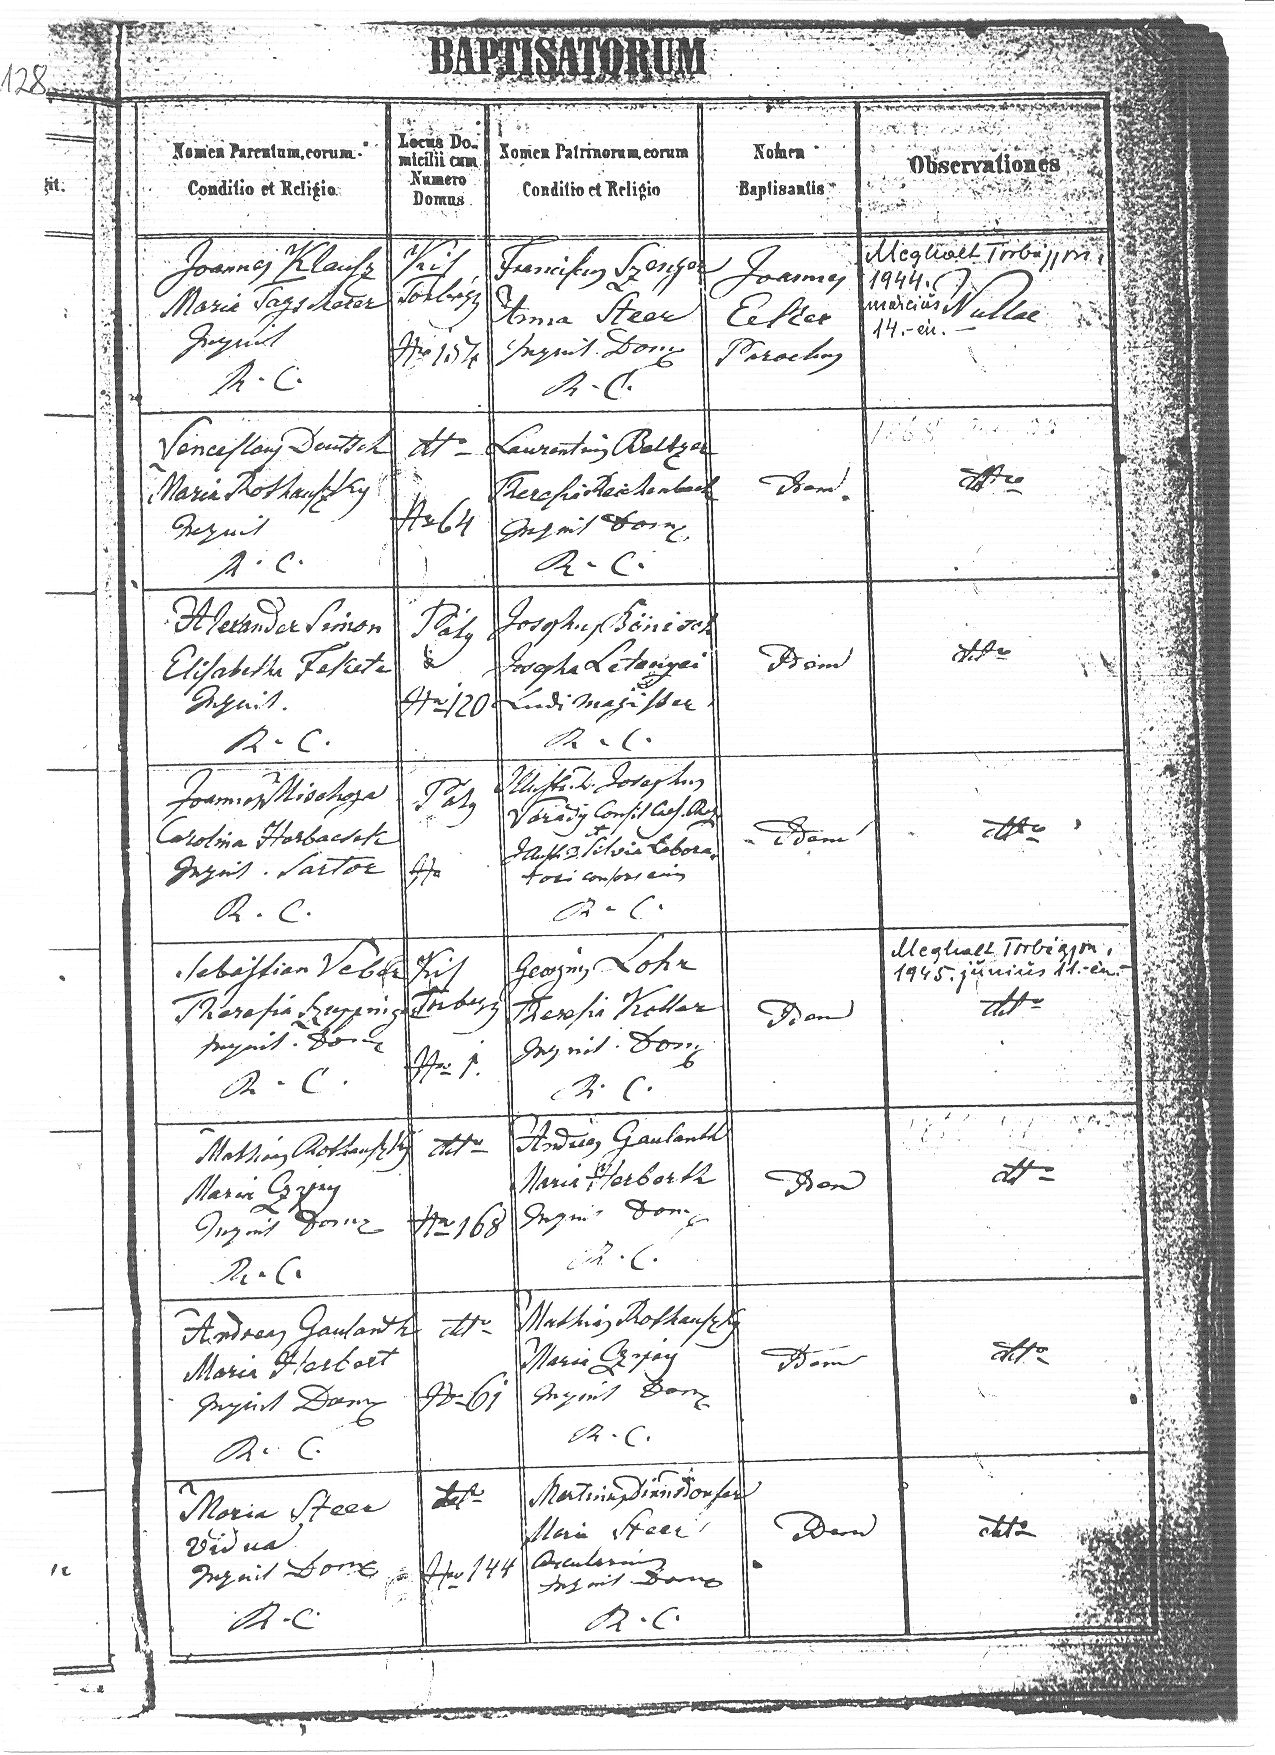 128
BAPTISATORUM
it.
Nomen Parentum, eorum
Conditio et Religio
Locus Do-
micilii cum
Numero
Domus
Nomen Patrinorum, eorum
Conditio et Religio
Nomen
Baptisantis
Observationes
Joannes Klausz
Maria
Inquil
R. C.
Kis
Torbágy
Nro 154
Franciscus Szenger
Anna Steer
Inquil. Dom
R. C.
Joannes
Parochus
Meghalt Torbágyon,
1944.
március Nullae
14.-én.
Venceslaus Deutsch
Maria Rothauszky
Inquil
R. C.
dtto
Nro 64
Laurentius Beltzer
Theresia Reichenbach
Inquil Dom
R. C.
Idem
dtto
Alexander Simon
Elisabetha Fekete
Inquil.
R. C.
Páty
Nro 120
Josephus Bönisch
Josepha Letenyei
Ludi magister
R. C.
Idem
dtto
Joannes
Carolina Horbacsek
Inquil. Sartor
R. C.
Páty
Nro
Josephus
Várady Consil Caes. Reg
Silvia
R. C.
Idem
dtto
Sebastian Veber
Theresia
Inquil. Dom
R. C.
Kis
Torbágy
Nro 1.
Georgius Lohr
Theresia Koller
Inquil. Dom
R. C.
Idem
Meghalt Torbágyon,
1945. június 11.-én.-
dtto
Mathias Rothauszky
Maria
Inquil Dom
R. C.
dtto
Nro 168
Andreas Gaulanth
Maria Herborth
Inquil Dom
R. C.
Idem
dtto
Andreas Gaulanth
Maria Herbort
Inquil Dom
R. C.
dtto
Nro 61
Mathias Rothauszky
Maria
Inquil Dom
R. C.
Idem
dtto
Maria Steer
Vidua
Inquil Dom
R. C.
dtto
Nro 144
Martinus
Maria Steer
Inquil Dom
R. C.
Idem
dtto